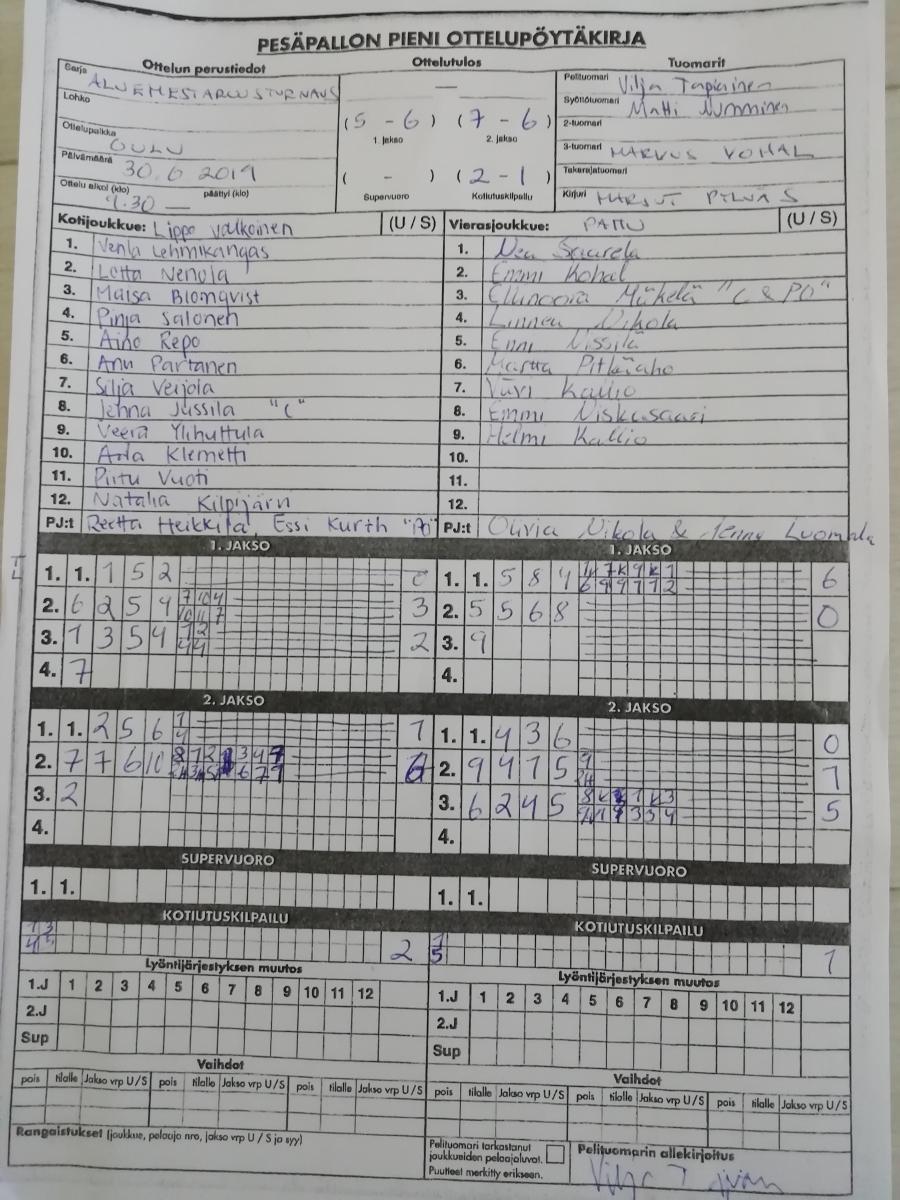 PESÄPALLON PIENI OTTELUPÖYTÄKIRJA
Ottelun perustiedot
Ottelutulos
Tuomarit
Sarja ALUEMESTARUUSTURNAUS
Lohko
Ottelupaikka OULU
Päivämäärä 30.6 2019
Ottelu alkoi (klo) 9.30 — päättyi (klo)
—
(5 - 6) (7 - 6)
1. jakso 2. jakso
( - ) (2 - 1)
Supervuoro Kotiutuskilpailu
Pelituomari Vilja
Syöttötuomari Matti Numminen
2-tuomari
3-tuomari
Takarajatuomari
Kirjuri
Kotijoukkue: Lippo valkoinen (U / S)
1. Venla Lehmikangas
2. Lotta Nenola
3. Maisa Blomqvist
4. Pinja Salonen
5. Aino Repo
6. Anu Partanen
7. Silja Veijola
8. Jenna Jussila "C"
9. Veera Ylihuttula
10. Ada Klemetti
11. Piitu Vuoti
12. Natalia
PJ:t Reetta Heikkilä, Essi Kurth
Vierasjoukkue: PATTU (U / S)
1. Saarela
2. Emmi Kohal
3. Ellinoora Mäkelä "C & PO"
4. Linnea Nikola
5. Enni Nissilä
6. Martta Pitkäaho
7. Viivi Kallio
8. Emmi Niskasaari
9. Helmi Kallio
10.
11.
12.
PJ:t Olivia Nikola & Jenny Luomala
1. JAKSO
1. 1. 1 5 2 0
2. 6 2 5 4 3
3. 1 3 5 4 2
4. 7
1. JAKSO
1. 1. 5 8 4 6
2. 5 5 6 8 0
3. 9
4.
2. JAKSO
1. 1. 2 5 6 1
2. 7 7 6 10
3. 2
4.
2. JAKSO
1. 1. 4 3 6 0
2. 9 4 1 5 1
3. 6 2 4 5 5
4.
SUPERVUORO
1. 1.
SUPERVUORO
1. 1.
KOTIUTUSKILPAILU
1 3
4 5
2
KOTIUTUSKILPAILU
1
5
1
Lyöntijärjestyksen muutos
1.J 1 2 3 4 5 6 7 8 9 10 11 12
2.J
Sup
Lyöntijärjestyksen muutos
1.J 1 2 3 4 5 6 7 8 9 10 11 12
2.J
Sup
Vaihdot
pois tilalle Jakso vrp U / S pois tilalle Jakso vrp U / S pois tilalle Jakso vrp U / S
Vaihdot
pois tilalle Jakso vrp U / S pois tilalle Jakso vrp U / S pois tilalle Jakso vrp U / S
Rangaistukset (joukkue, pelaaja nro, jakso vrp U / S ja syy)
Pelituomari tarkastanut
joukkueiden pelaajaluvat.
Puutteet merkitty erikseen.
Pelituomarin allekirjoitus